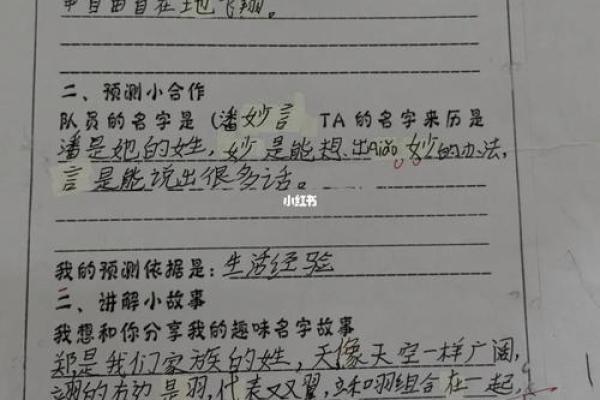 自由自在地飞翔。
二、预测小合作
队员的名字是(潘妙言 TA的名字来历是
潘是她的姓,妙是能想出qiǎo妙的办法,
言是能说出很多话。
小红书
我的预测依据是:生活经验
三、讲解小故事
我想和你分享我的趣味名字故事
郑是我们家族的姓,天像天空一样广阔,
翊的右边是羽,代表双翼,立和羽组合在一起,